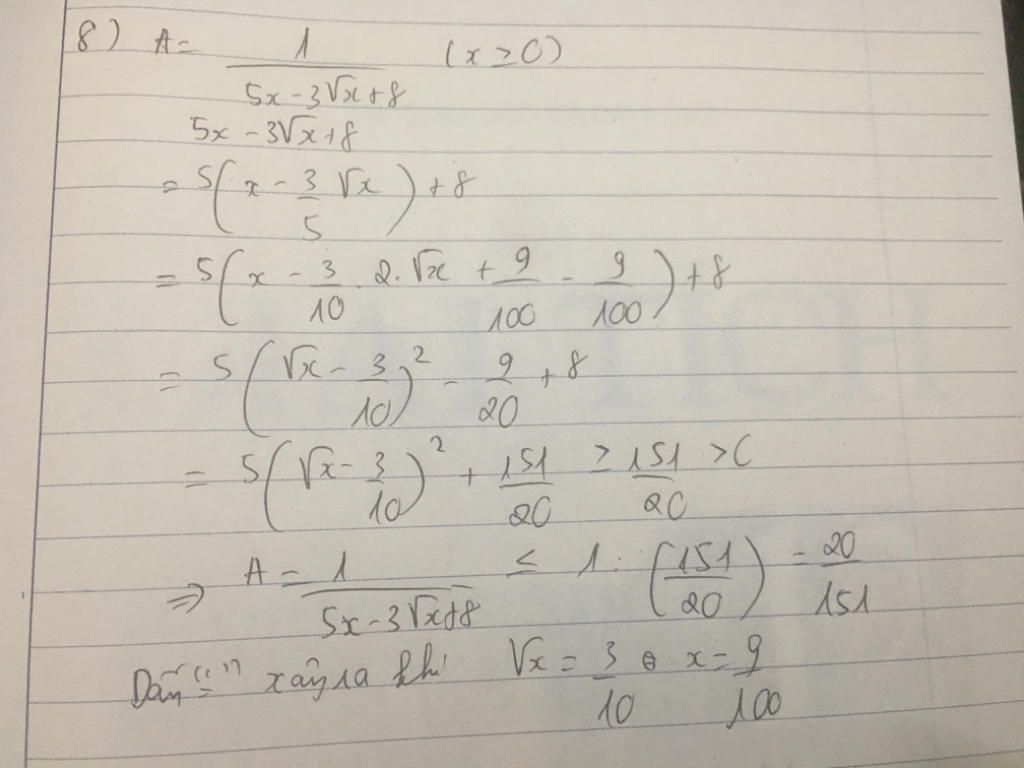 8) A = 1/(5x - 3√x + 8) (x ≥ 0)
5x - 3√x + 8
= 5(x - 3/5 √x) + 8
= 5(x - 3/10 . 2 . √x + 9/100 - 9/100) + 8
= 5(√x - 3/10)² - 9/20 + 8
= 5(√x - 3/10)² + 151/20 ≥ 151/20 > 0
⇒ A = 1/(5x - 3√x + 8) ≤ 1 : (151/20) = 20/151
Dấu "=" xảy ra khi √x = 3/10 ⇔ x = 9/100